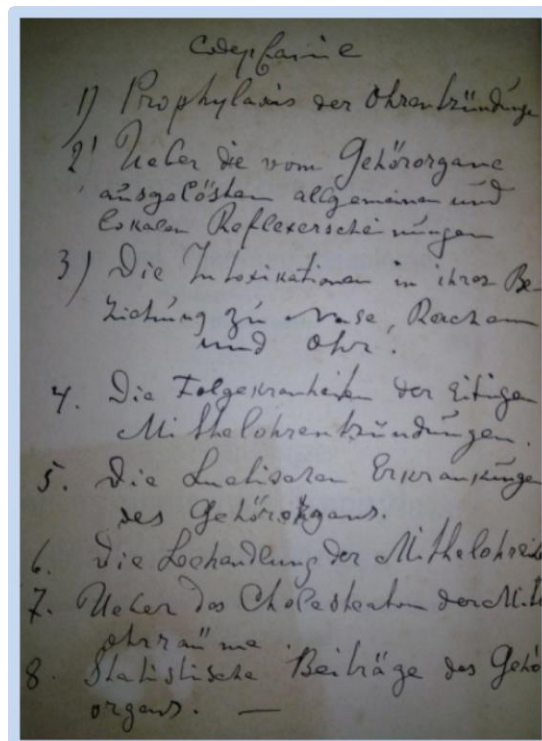 1) Prophylaxis der Ohrentzündunge
2) Ueber die vom Gehörorgane
ausgelösten allgemeinen und
lokalen Reflexerscheinungen
3) Die Intoxikationen in ihrer Be-
ziehung zu Nase, Rachen
und Ohr.
4. Die Folgekrankheiten der Eitrigen
Mittelohrentzündungen.
5. Die Luetischen Erkrankunge
des Gehörorgans.
6. Die Behandlung der Mittelohreit
7. Ueber das Cholesteatom der Mitt
ohrräume.
8. Statistische Beiträge des Gehö
organs. —